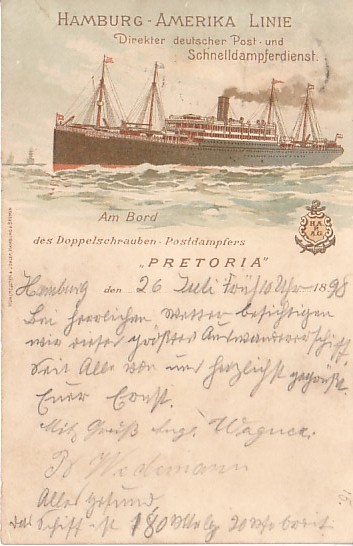 HAMBURG-AMERIKA LINIE
Direkter deutscher Post- und
Schnelldampferdienst.
HA
P
A.G.
Am Bord
des Doppelschrauben-Postdampfers
„PRETORIA"
Hamburg den 26 Juli Früh 10 Uhr 1898
Bei herrlichem Wetter besichtigen
wir dieses größtes Auswandererschiff
Seit Alle von uns herzlichst gegrüßt.
Euer Ernst.
Mit Gruß Engl. Wagner.
Wedemann
Alles gesund
das Schiff ist 180 Mtr lg 20 Mtr breit.